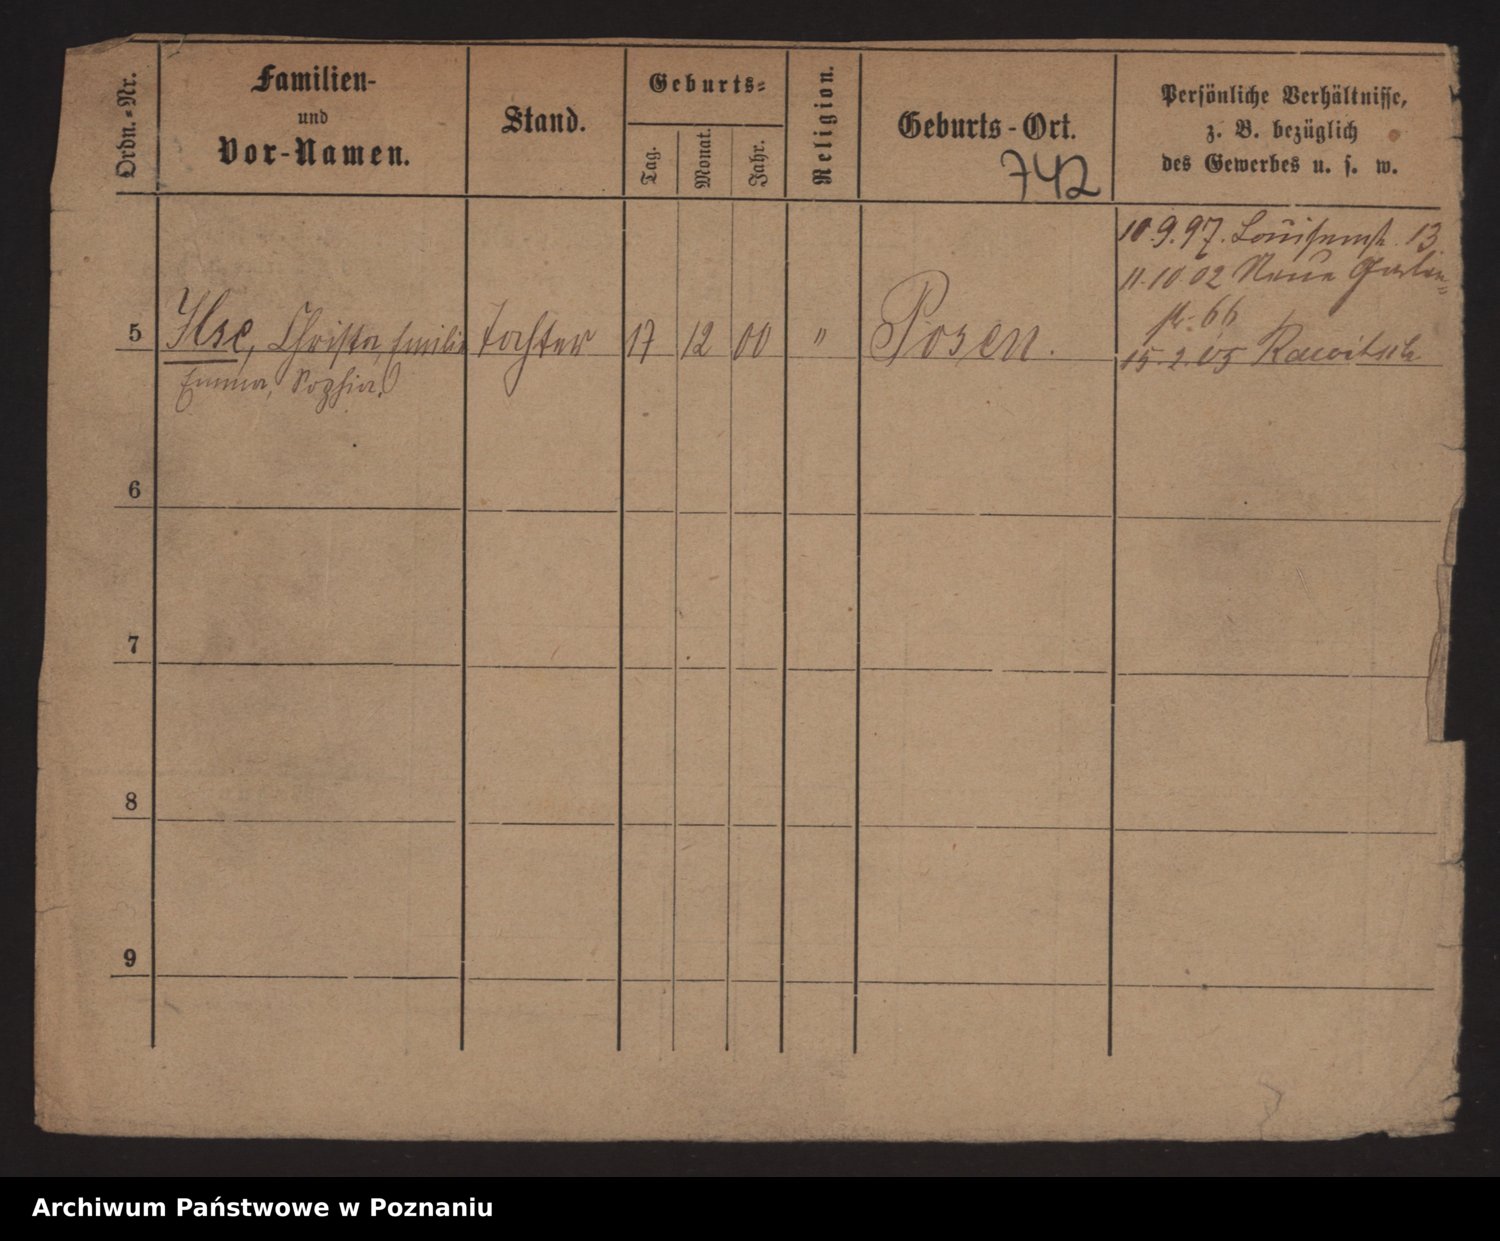 Ordn.-Nr.
Familien-
und
Vor-Namen.
Stand.
Geburts-
Tag.
Monat.
Jahr.
Religion.
Geburts-Ort.
742
Persönliche Verhältnisse,
z. B. bezüglich
des Gewerbes u. s. w.
10.9.97. Louisenstr. 13
11.10 02 Neue Garten=
str. 66
15.2.05 Rawitsch
5 Ilse, Christa, Emilie Tochter 17 12 00 " Posen.
Emma, Sophia.
6
7
8
9
Archiwum Państwowe w Poznaniu